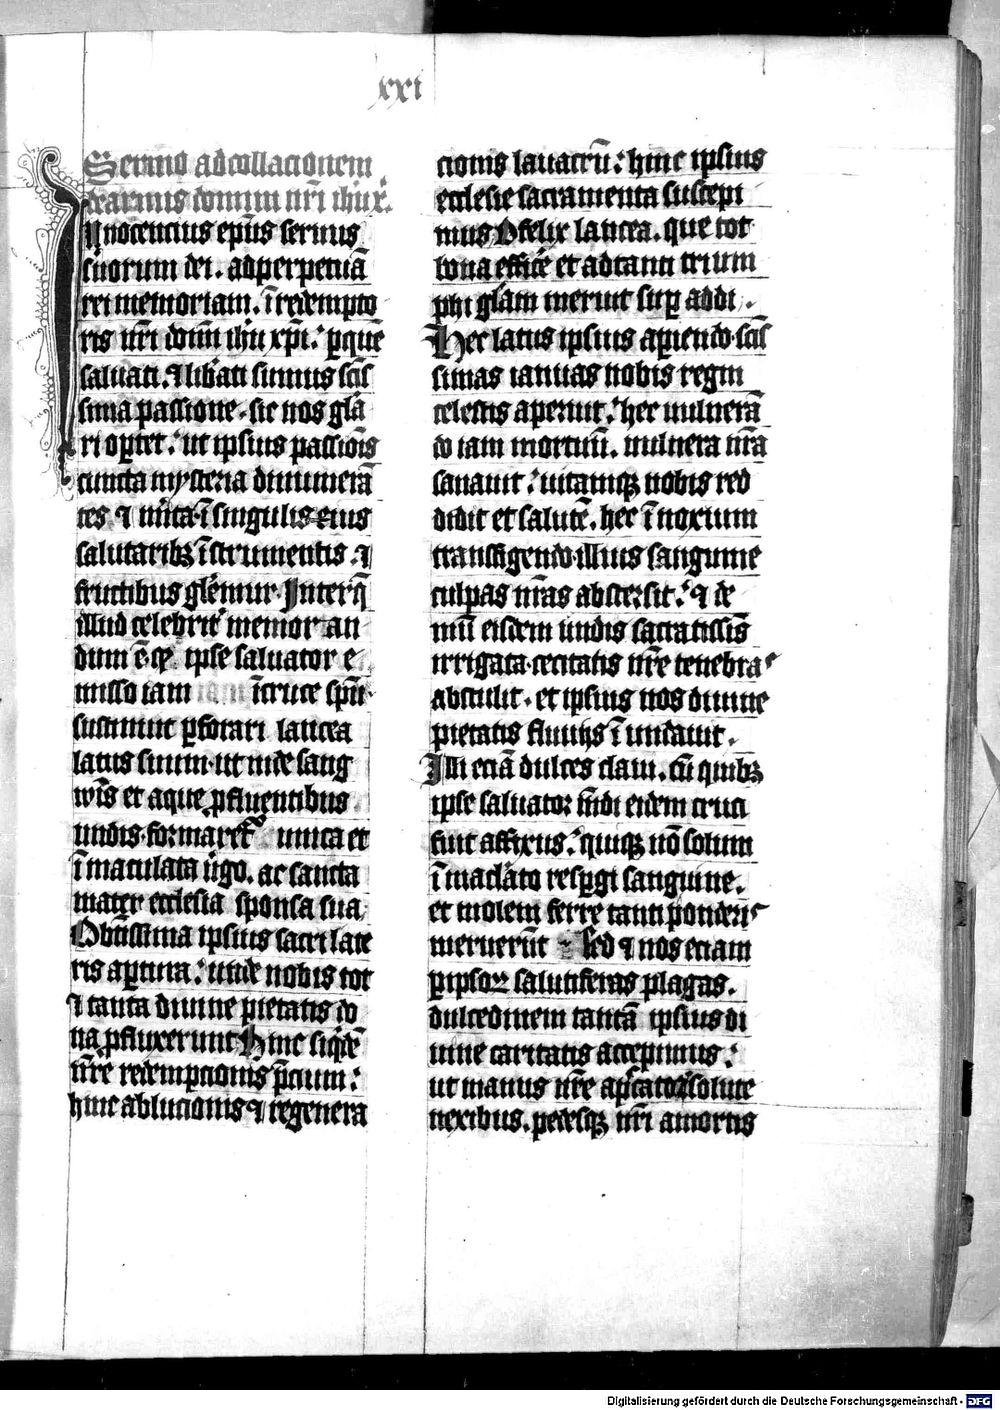 xxi
Sermo ad collacionem
de armis domini nr̄i ihū x̄.
Innocencius ep̄us seruus
seruorum dei. ad perpetuā
rei memoriam. ī redempto
ris nr̄i dom̄ ihū xp̄i: p̱ quē
saluati. ⁊ lib̄ati sumus scīs
sima passione. sic nos glā
ri op̄tet: ut ipsius passiōis
cuncta mysteria dinumerā
tes ⁊ mīta. ī singulis eius
salutaribꝫ īstrumentis: ⁊
fructibus glēmur. Inter q̄
illud celebrit᷑ memor an
dum ē. cꝙ ipse saluator e
misso iam ī cruce spm̄
sustinuit ꝑforari lancea
latus suum. ut inde sang
wīs et aque ꝓfluentibus
undis. formaret᷑ unica et
ī maculata ṽgo. ac sancta
mater ecclesia sponsa sua
O bt̄issima ipsius sacri late
ris aꝑtura: unde nobis tot
⁊ tanta diuine pietatis do
na ꝓfluxerunt Hinc siqͥdē
nr̄e redempcionis p̄cium:
hinc ablucionis ⁊ regenera
cionis lauacrū: hinc ipsius
ecclesie sacramenta suscepi
mus O felix lancea. que tot
bona effic̄e et ad tanti trium
phi glām meruit suꝑ addi.
Hec latus ipsius aꝑiendo. scīs
simas ianuas nobis regni
celestis aperuit: hec uulnerā
do iam mortuū. uulnera nr̄a
sanauit: uitamqꝫ nobis red
didit et salutē. hec īnoxium
transfigendo. illius sanguine
culpas nr̄as abstersit: ⁊ de
mū eisdem undis sacratissīs
irrigata. cecitatis nr̄e tenebras
abstulit. et ipsius nos diuine
pietatis fluuiis īundauit.
Illi eciā dulces claui. cū quibꝫ
ipse saluator mūdi eidem cruci
fuit affixus: quiqꝫ nō solum
īmaclato resꝑgi sanguine.
et molem ferre tanti ponderis
meruerūt Sed ⁊ nos eciam
ꝑ ipsoꝝ salutiferas plagas.
dulcedinem tantā ipsius di
uine caritatis accepimus:
ut manus nr̄e a pc̄atoꝝ solute
nexibus. pedesqꝫ nr̄i a mortis
Digitalisierung gefördert durch die Deutsche Forschungsgemeinschaft - DFG